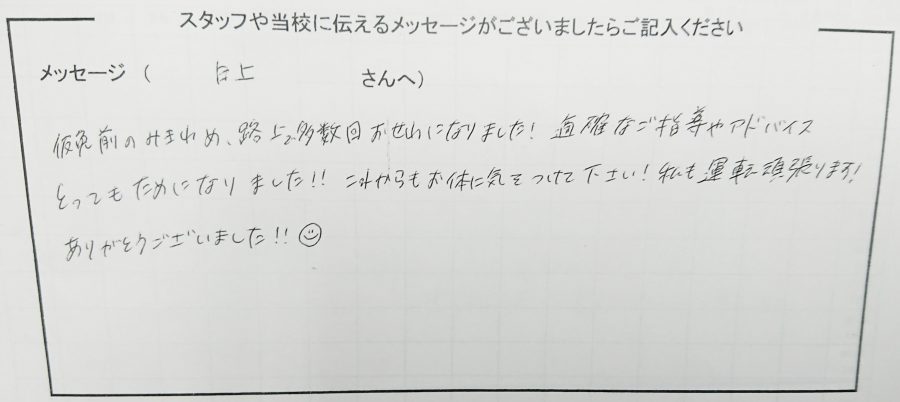 スタッフや当校に伝えるメッセージがございましたらご記入ください
メッセージ ( 台上 さんへ)
仮免前のみきわめ、路上で多数回お世わになりました! 適確なご指導やアドバイス
とってもためになりました!! これからもお体に気をつけて下さい! 私も運転頑張ります!
ありがとうございました!! ☺